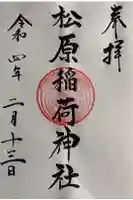 奉拝
松原稲荷神社
令和四年二月十三日